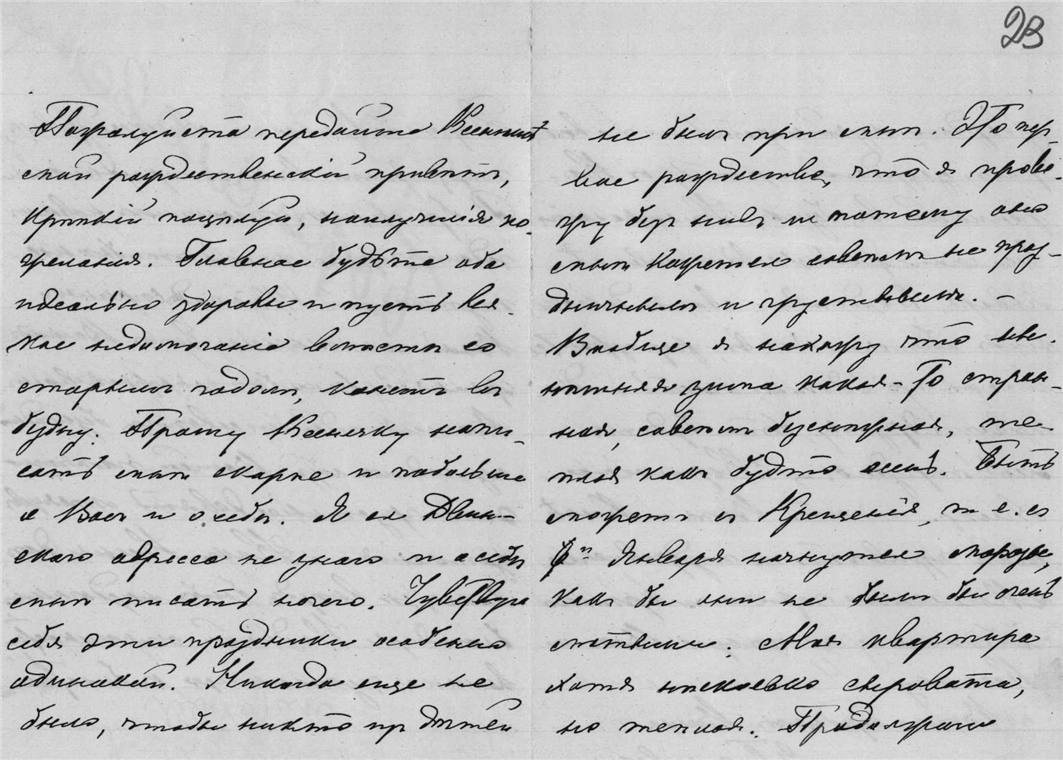 23
Пожалуйста передайте Веничкѣ
мой рождественскій привѣтъ,
крѣпкій поцѣлуй, наилучшія по-
желанія. Главное будьте оба
идеально здоровы и пусть вся-
кое недомоганіе вмѣстѣ со
старымъ годомъ, канетъ въ
бездну. Прошу Веничку напи-
сать мнѣ скорѣе и побольше
о Васъ и о себѣ. Я ея Двин-
скаго адреса не знаю и о себѣ
мнѣ писать нечего. Чувствую
себя эти праздники особенно
одинокой. Никогда еще не
было, чтобы никто изъ дѣтей
не былъ при мнѣ. Это пер-
вое рождество, что я прове-
жу безъ нихъ и потому оно
мнѣ кажется совсѣмъ не праз-
дничнымъ и грустнымъ. —
Вообще я нахожу что ны-
нѣшняя зима какая-то стран-
ная, совсѣмъ безснѣжная, те-
плая какъ будто осень. Быть
можетъ съ Крещенія, т. е. съ
6го Января начнутся морозы,
какъ бы они не были бы очень
сильными. Моя квартира
хотя нѣсколько сыровата,
но теплая. Продолжаю